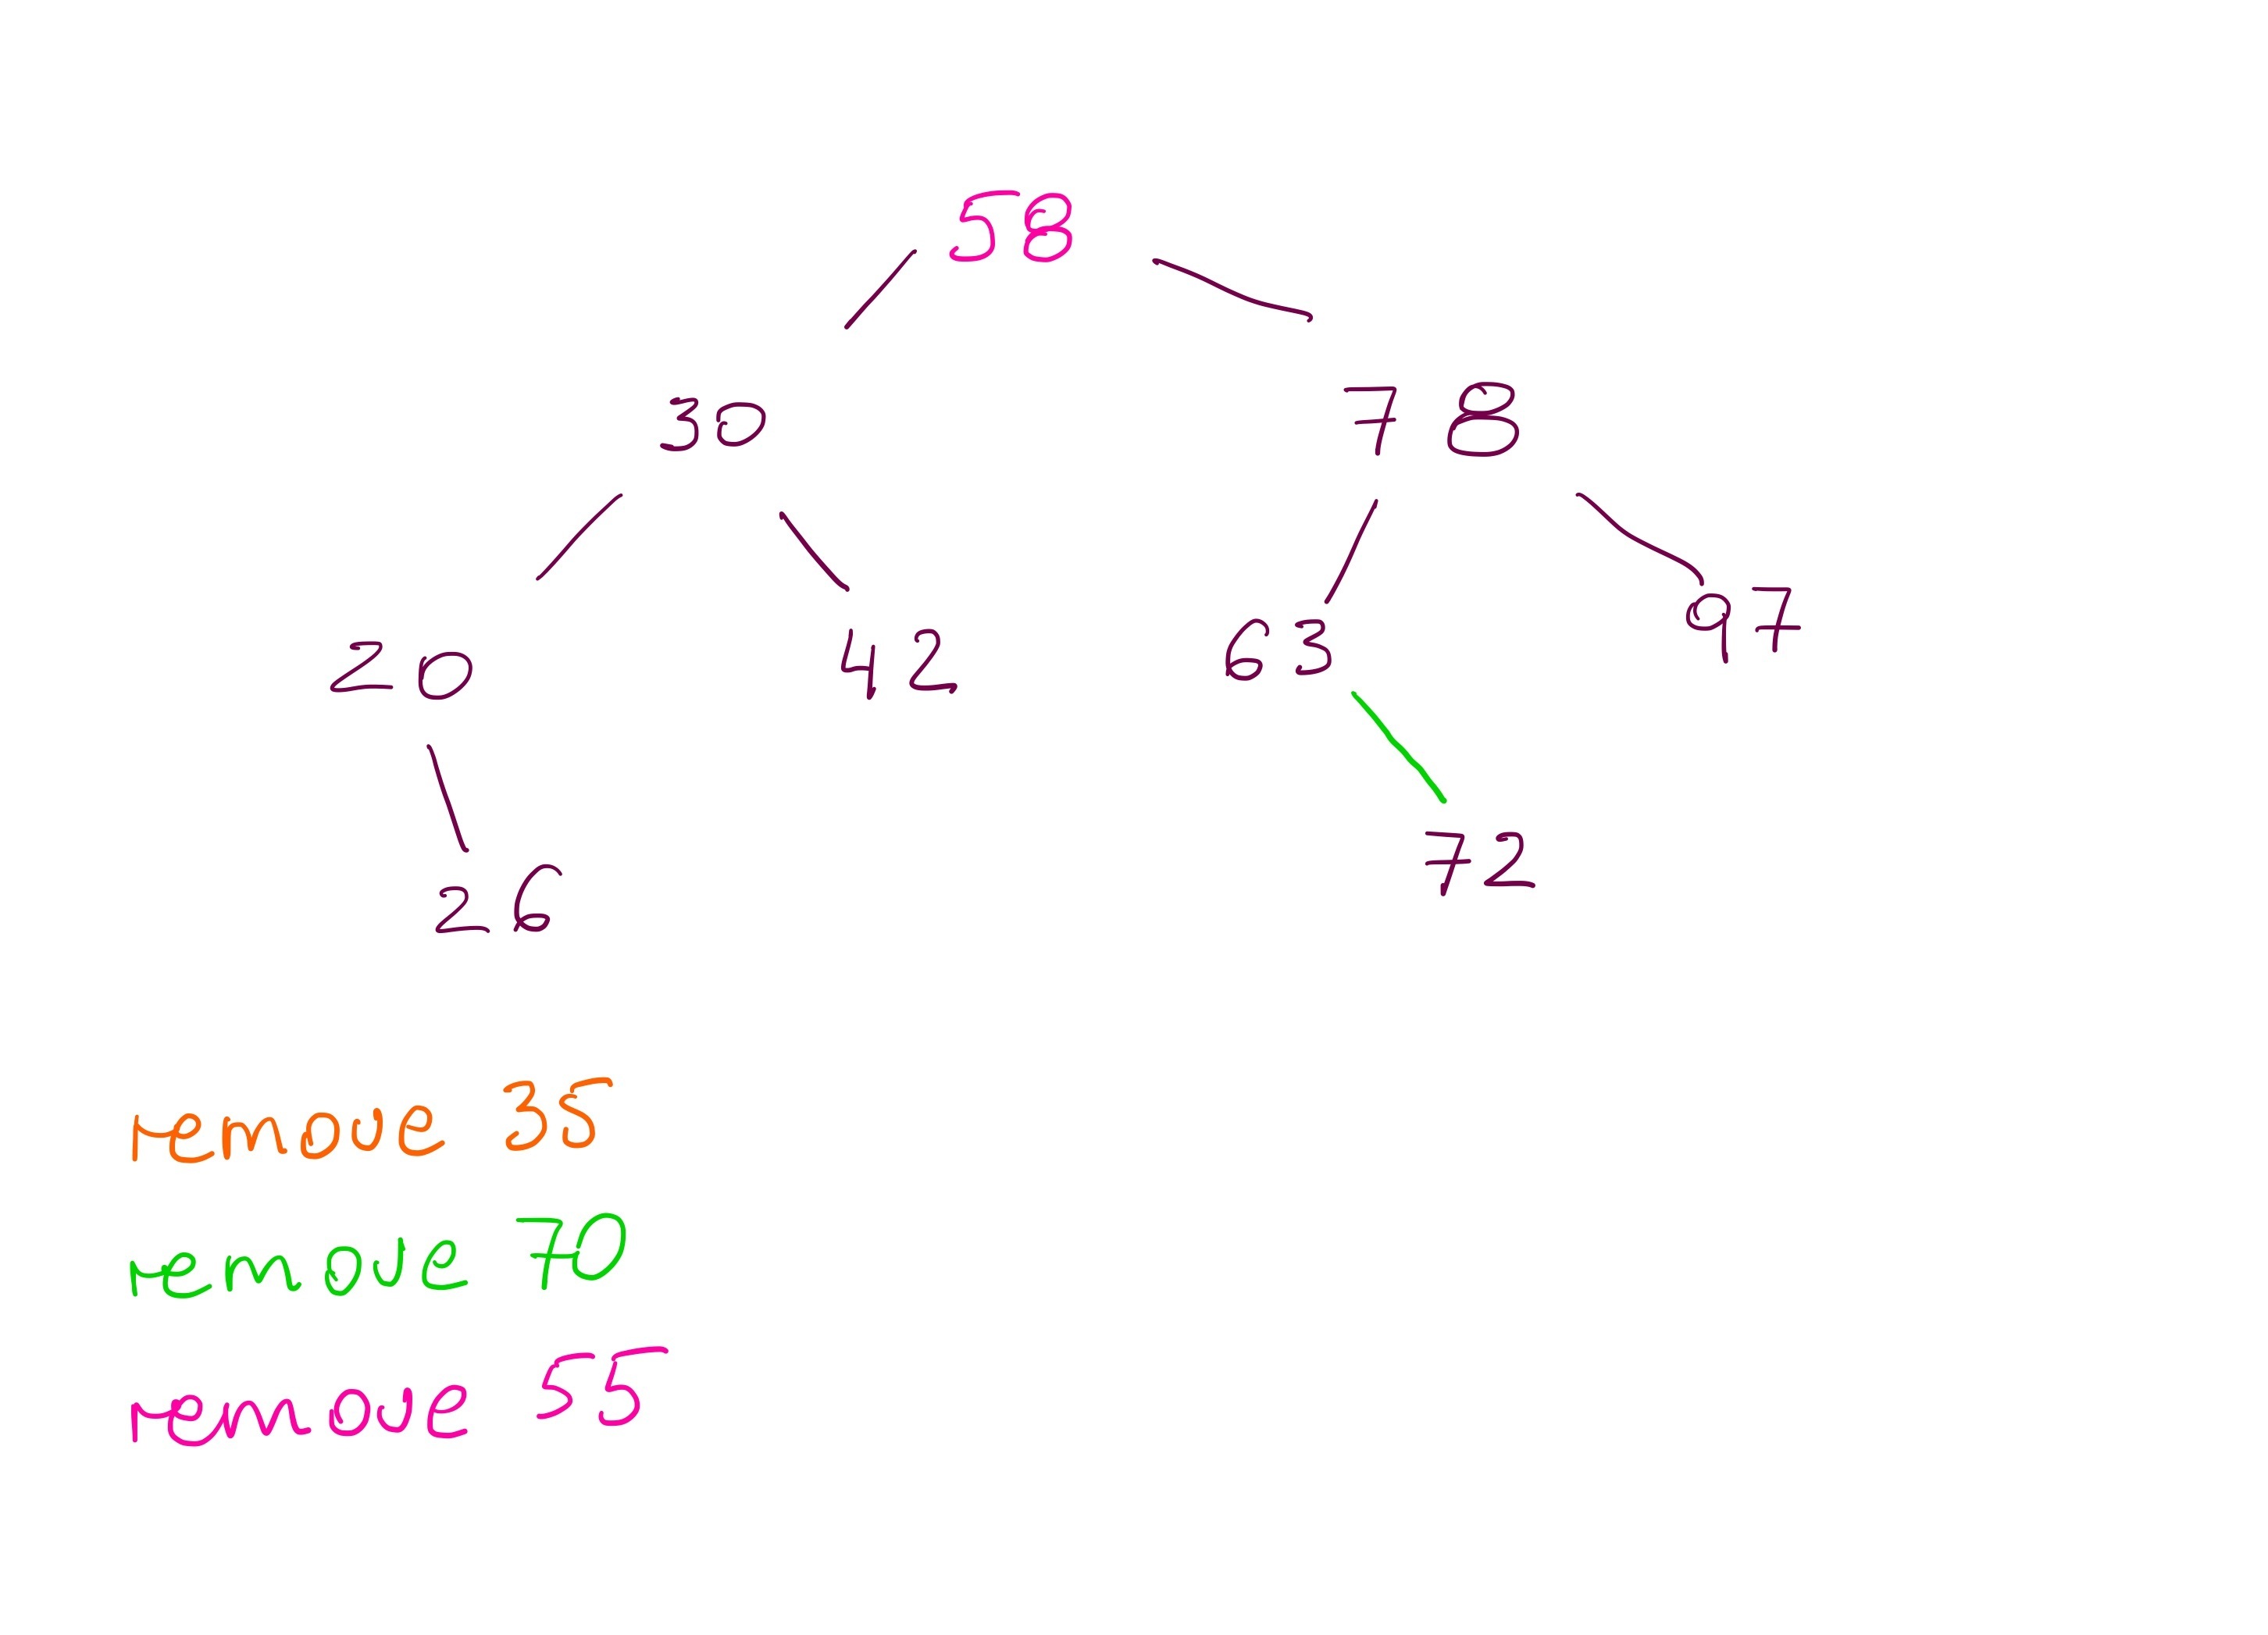 58
30 78
20 42 63 97
26 72
remove 35
remove 70
remove 55